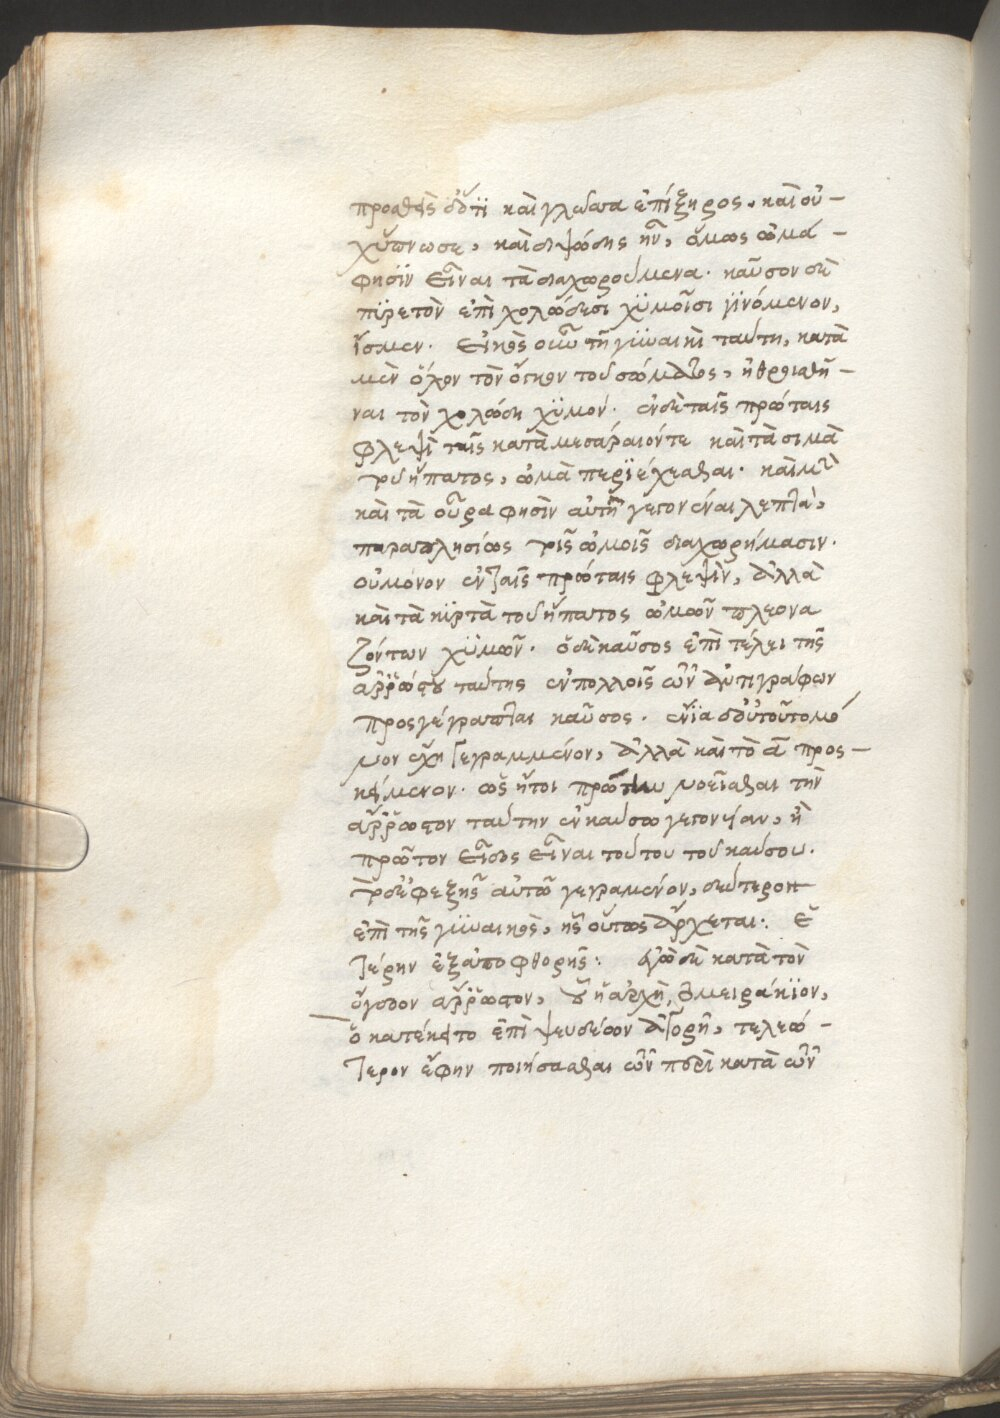 προσθεὶς ὅτι καὶ γλῶσσα ἐπίξηρος. καὶ οὐ-
χ ὕπνωσε, καὶ διψώδης ἦν, ὅμως ὠμά-
φησϊν εἶναι τὰ διαχωρούμενα. καῦσον δὲ
πϋρετὸν ἐπὶ χολώδεσι χϋμοῖσι γϊνόμενον,
ἴσμεν. εἰκὸς οὖν τῇ γϋναικὶ ταύτῃ, κατὰ
μὲν ὅλον τὸν ὄγκον τοῦ σώματος, ἠθροισθῆ-
ναι τὸν χολώδη χϋμόν. ἐν δὲ ταῖς πρώταις
φλεψὶ ταῖς κατὰ μεσάραιόν τε καὶ τὰ σιμὰ
τοῦ ἥπατος, ὠμὰ περϊέχεσθαι. καὶ μὴν
καὶ τὰ οὖρα φησὶν αὐτῇ γεγονέναι λεπτὰ,
παραπλησίως τοῖς ὠμοῖς διαχωρήμασιν.
οὐ μόνον ἐν ταῖς πρώταις φλεψὶν, ἀλλὰ
καὶ τὰ κϋρτὰ τοῦ ἥπατος ὠμῶν πλεονα
ζόντων χϋμῶν. ὁ δὲ καῦσος ἐπὶ τέλει τῆς
ἀῤῥώστου ταύτης ἐν πολλοῖς τῶν ἀντιγράφων
προσγέγραπται καῦσος. ἔνϊα δ' αὐτοῦτο μό
νον ἔχει γεγραμμένον, ἀλλὰ καὶ τὸ α προσ-
κείμενον. ὡς ἤτοι πρώτην νοεῖσθαι τὴν
ἄῤῥωστον ταύτην ἐν καύσω γεγονυῖαν, ἢ
πρῶτον εἶδος εἶναι τούτου τοῦ καύσου.
τὸ δ' ἐφεξῆς αὐτῶ γεγραμένον, δεύτερον
ἐπὶ τῆς γϋναικὸς, ἧς οὕτως ἄρχεται: ἑ
τέρην ἐξ ἀποφθορῆς: ἐγὼ δὲ κατὰ τὸν
ὄγδοον ἄῤῥωστον, οὗ ἡ ἀρχὴ, μειράκϊον,
ὃ κατέκειτο ἐπὶ ψευδέων ἀγορῇ, τελεώ-
τερον ἔφην ποιήσασθαι τῶν περὶ κατὰ τῶν